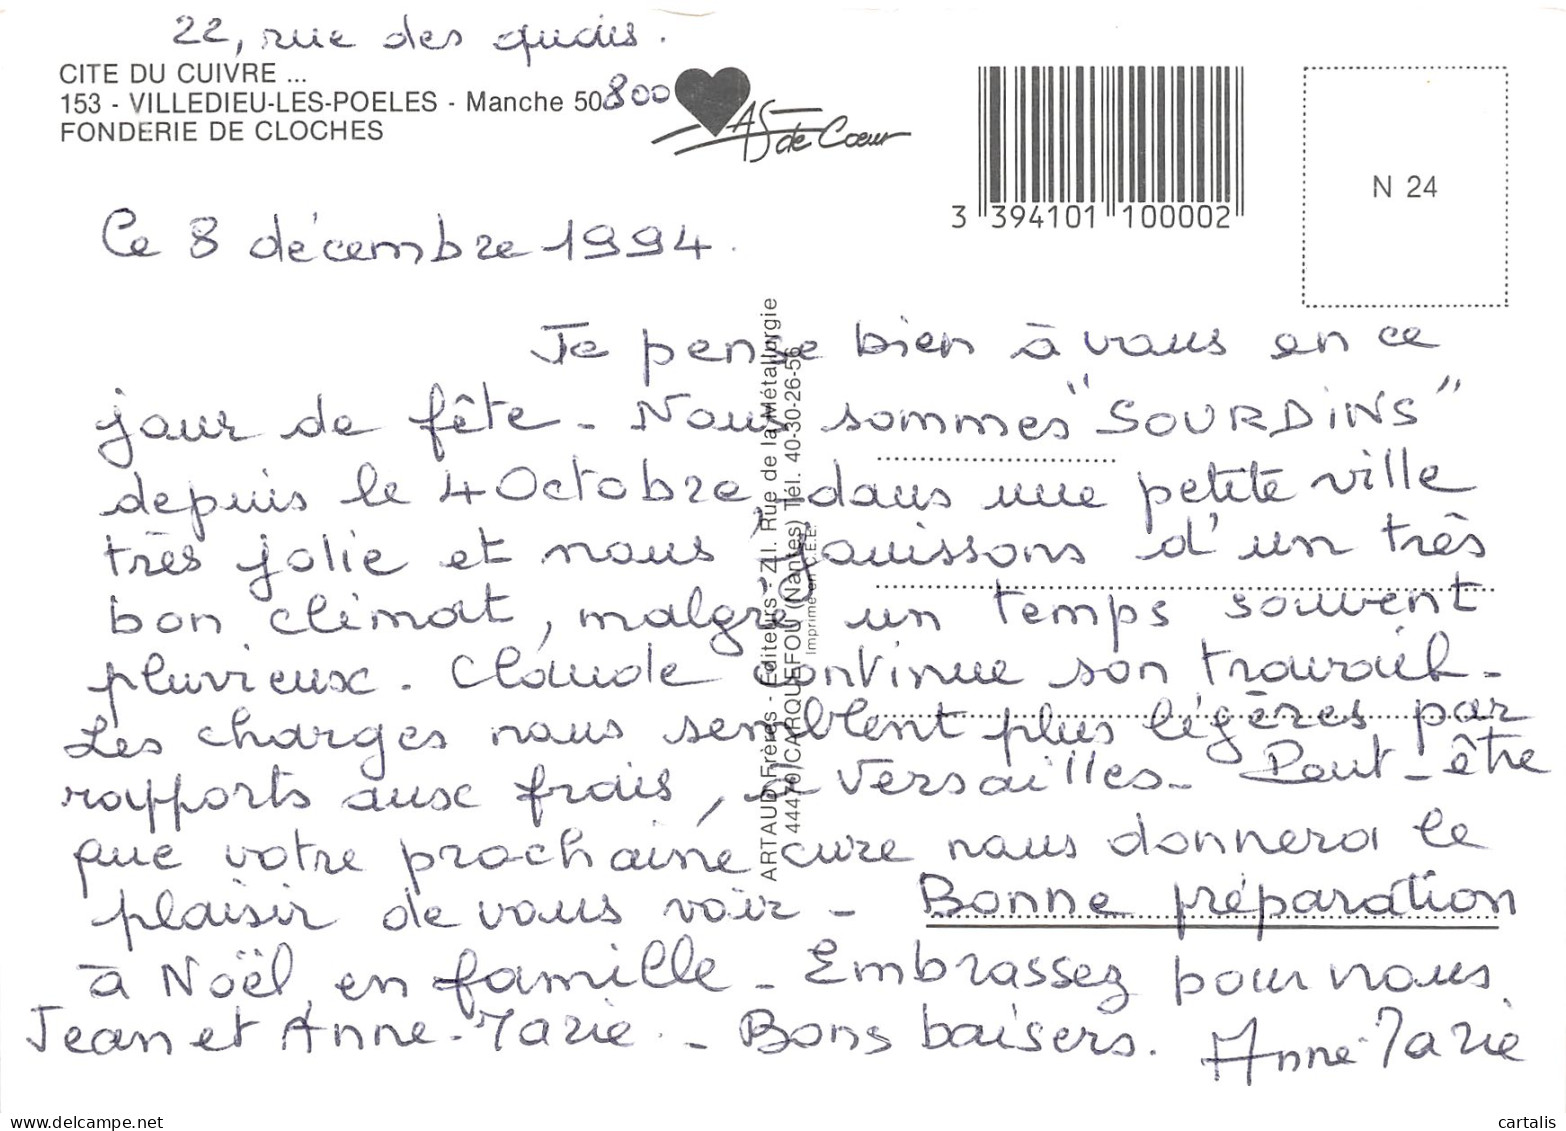 22, rue des quais.
CITE DU CUIVRE ...
153 - VILLEDIEU-LES-POELES - Manche 50800
FONDERIE DE CLOCHES
AS de Cœur
3 394101 100002
N 24
Ce 8 décembre 1994.
Je pense bien à vous en ce
jour de fête - Nous sommes "SOURDiNS"
depuis le 4 Octobre, dans une petite ville
très jolie et nous jouissons d'un très
bon climat, malgré un temps souvent
pluvieux. Claude continue son travail -
Les charges nous semblent plus légères par
rapports aux frais, à Versailles - Peut-être
que votre prochaine cure nous donnera le
plaisir de vous voir - Bonne préparation
à Noël, en famille - Embrassez pour nous
Jean et Anne-Marie - Bons baisers. Anne-Marie
ARTAUD Frères - Editeurs - Z.I. Rue de la Métallurgie
44470 CARQUEFOU (Nantes) Tél. 40-30-26-56
Imprimé en C.E.E.
cartalis